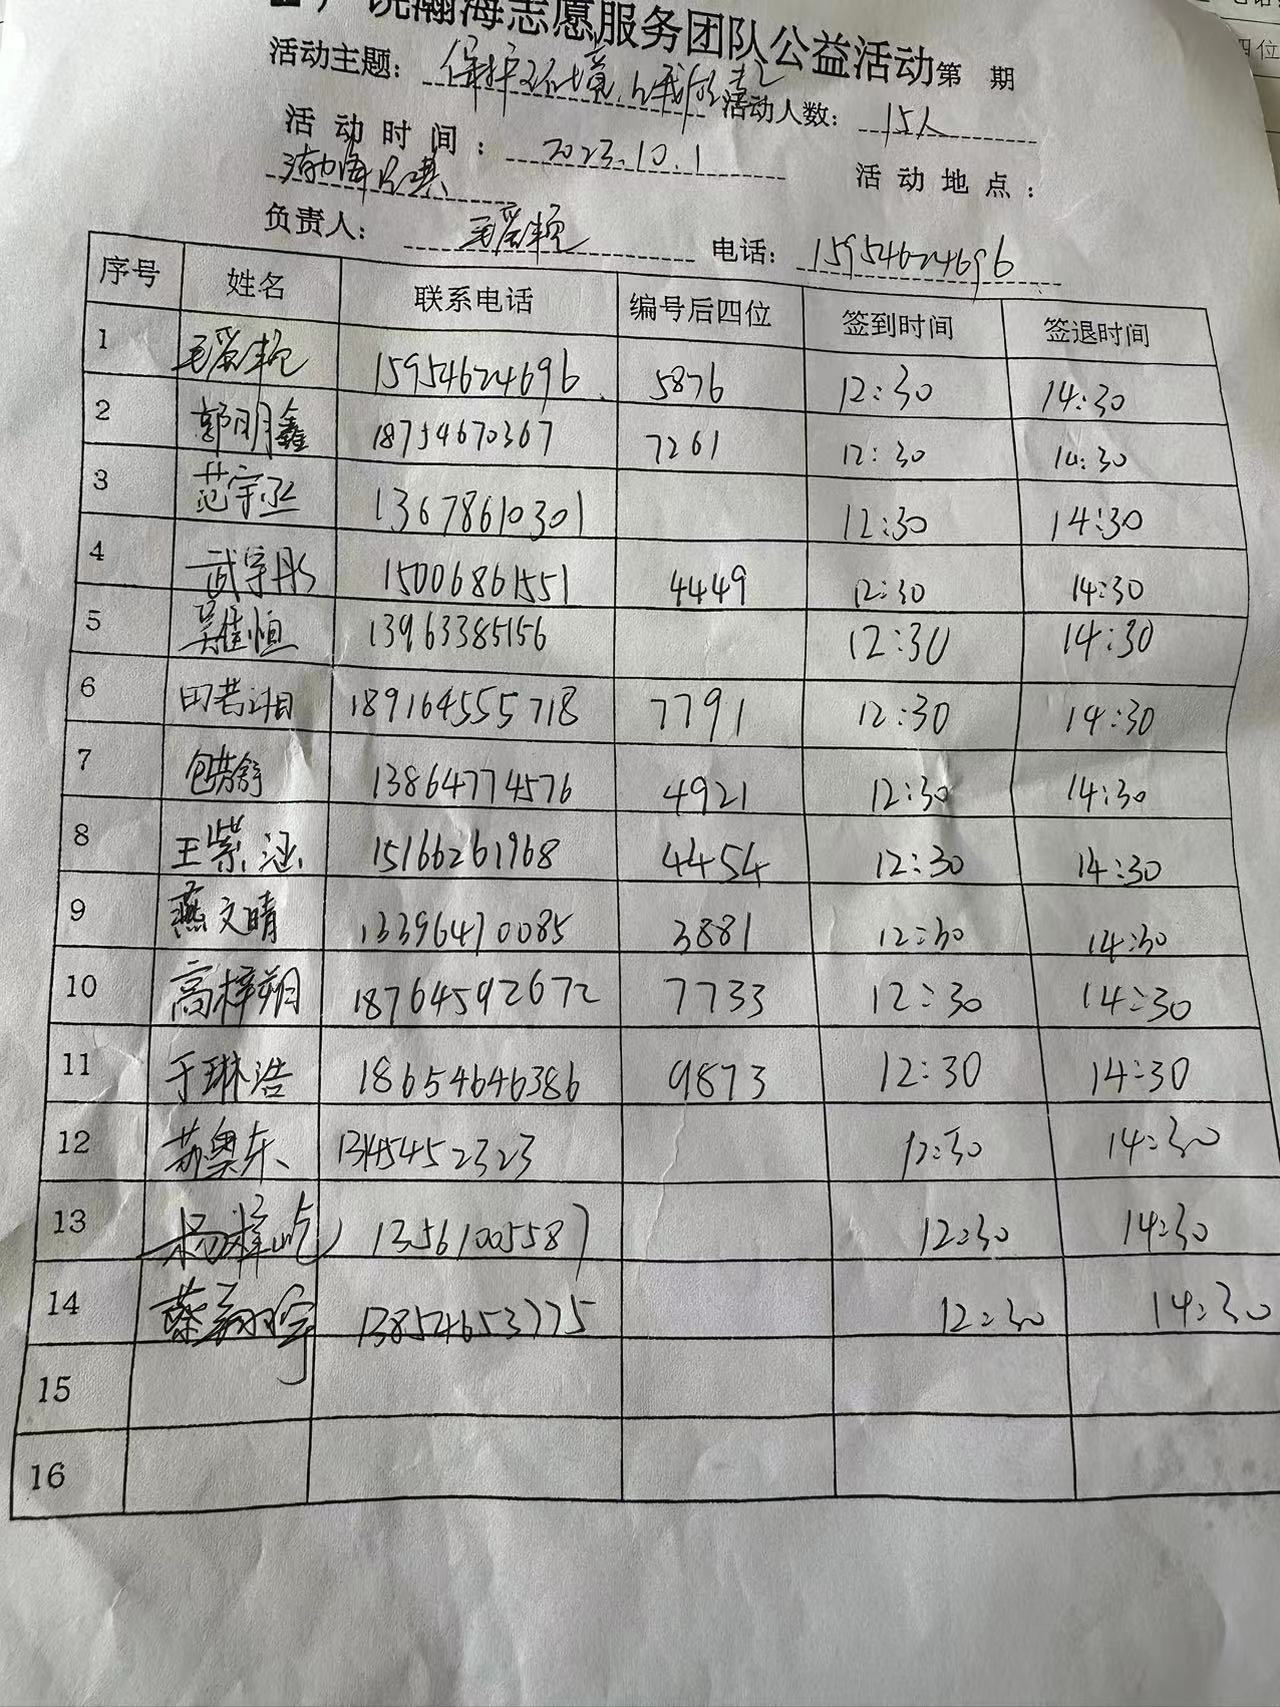 饶瀚海志愿服务团队公益活动第 期
活动主题: 保护环境,从我做起 活动人数: 15人
活动时间: 2023.10.1 活动地点:
渤海
负责人: 电话: 15954624696
序号 姓名 联系电话 编号后四位 签到时间 签退时间
1 15954624696 5876 12:30 14:30
2 郭明鑫 18754670367 7261 12:30 14:30
3 范宇丞 13678610301 12:30 14:30
4 武宇彤 15006861551 4449 12:30 14:30
5 吴佳恒 13963385156 12:30 14:30
6 田若汨 189164555718 7791 12:30 14:30
7 包芸舒 13864774576 4921 12:30 14:30
8 王紫涵 15166261968 4454 12:30 14:30
9 燕文晴 13396470085 3881 12:30 14:30
10 高梓朔 18764592672 7733 12:30 14:30
11 于琳浩 18654646386 9873 12:30 14:30
12 苏奥东 1345452323 12:30 14:30
13 杨梓屹 13561005587 12:30 14:30
14 蔡翔宇 13854653775 12:30 14:30
15
16
四位